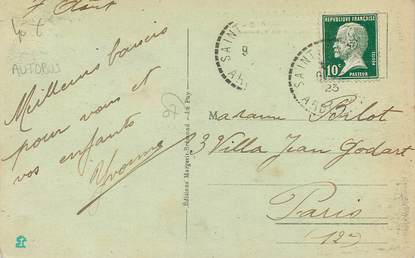 7 Août
AUTOBUS
Meilleurs baisers
pour vous et
vos enfants
Yvonne
Editions Margerit-Bremond - Le Puy
SAINT
9
23
RÉPUBLIQUE FRANÇAISE
10c
PASTEUR
Madame Pilot
3 Villa Jean Godart
Paris
(12e)